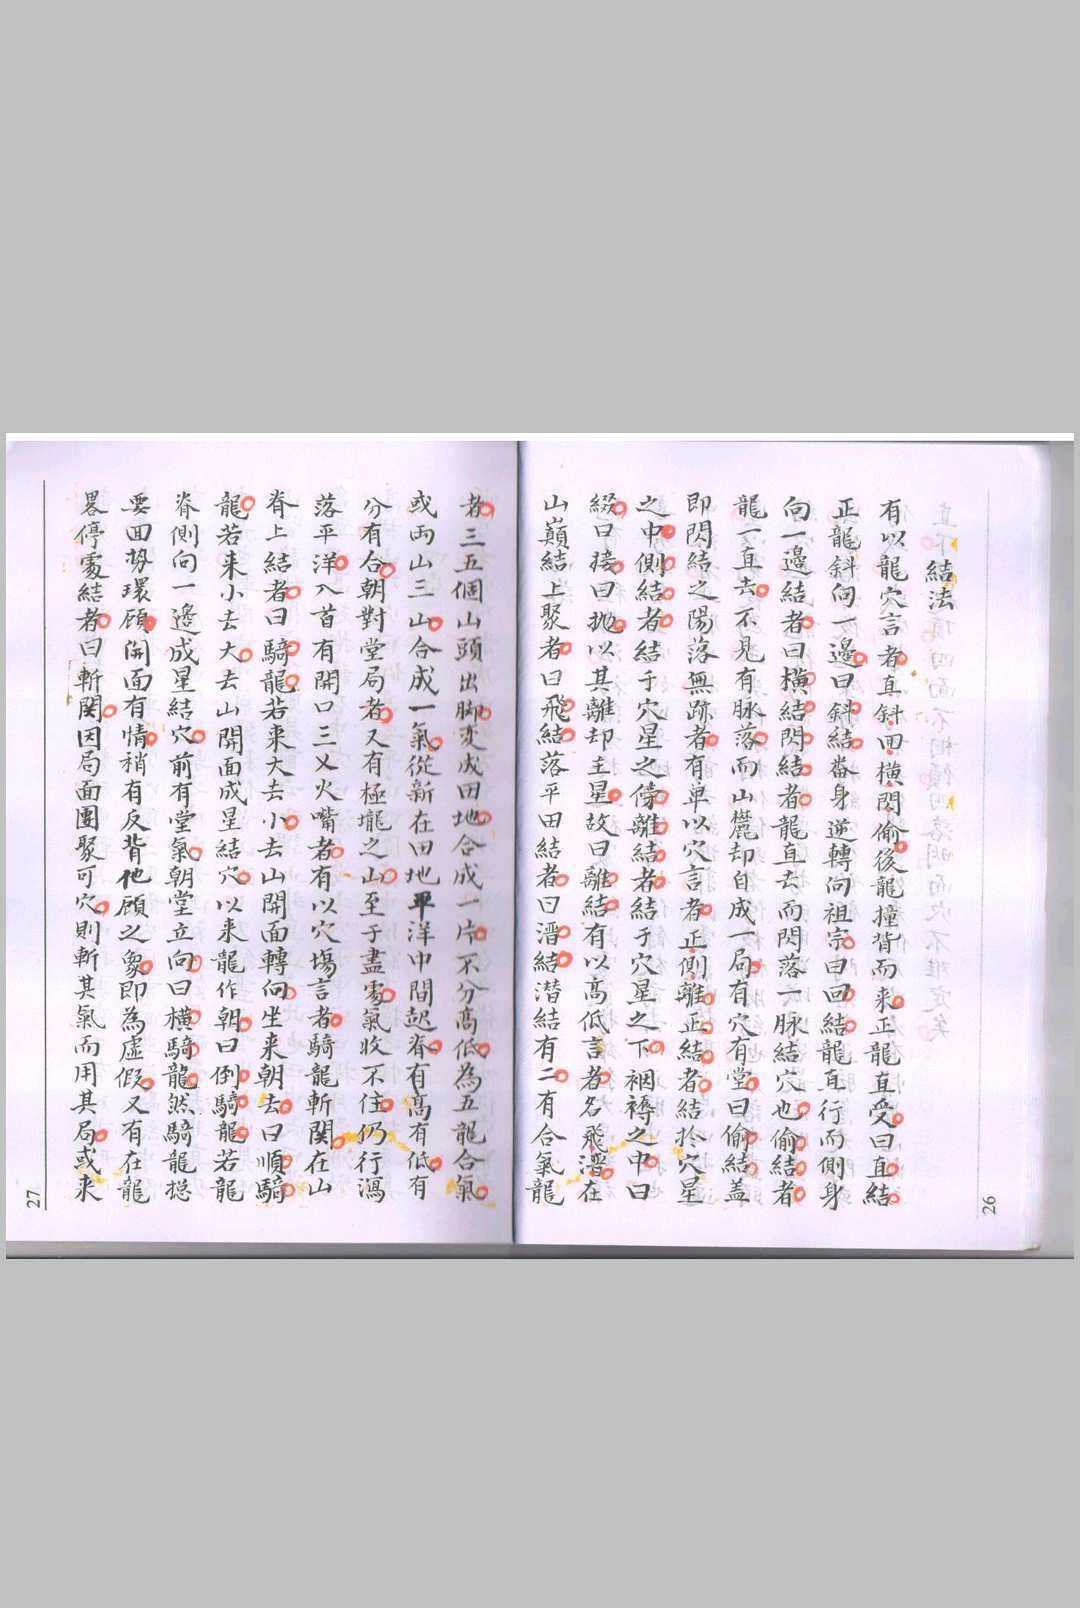 結法
有以龍穴言者直斜回橫閃偷後龍撞背而来正龍直受曰直結
正龍斜向一邊曰斜結畨身逆轉向祖宗曰回結龍直行而側身
向一邊結者曰橫結閃結者龍直去而閃落一脉結穴也偷結者
龍一直去不見有脉落而山麓却自成一局有穴有堂曰偷結盖
即閃結之陽落無跡者有单以穴言者正側離正結者結扵穴星
之中側結者結于穴星之傍離結者結于穴星之下裀褥之中曰
綴曰接曰抛以其離却主星故曰離結有以高低言者名飛潛在
山巔結上聚者曰飛結落平田結者曰潛結潜結有二有合氣龍
26
者三五個山頭出脚变成田地合成一片不分高低為五龍合氣
或両山三山合成一氣從新在田地平洋中間起脊有高有低有
分有合朝對堂局者又有極壠之山至于盡處氣收不住仍行瀉
落平洋八首有開口三乂火嘴者有以穴塲言者騎龍斬関在山
脊上結者曰騎龍若来大去小去山開面轉向坐来朝去曰順騎
龍若来小去大去山開面成星結穴以来龍作朝曰倒騎龍若龍
脊側向一邊成星結穴前有堂氣朝堂立向曰橫騎龍然騎龍捴
要面势環顾開面有情稍有反背他顾之象即為虛假又有在龍
畧停處結者曰斬関因局面團聚可穴則斬其氣而用其局或来
27